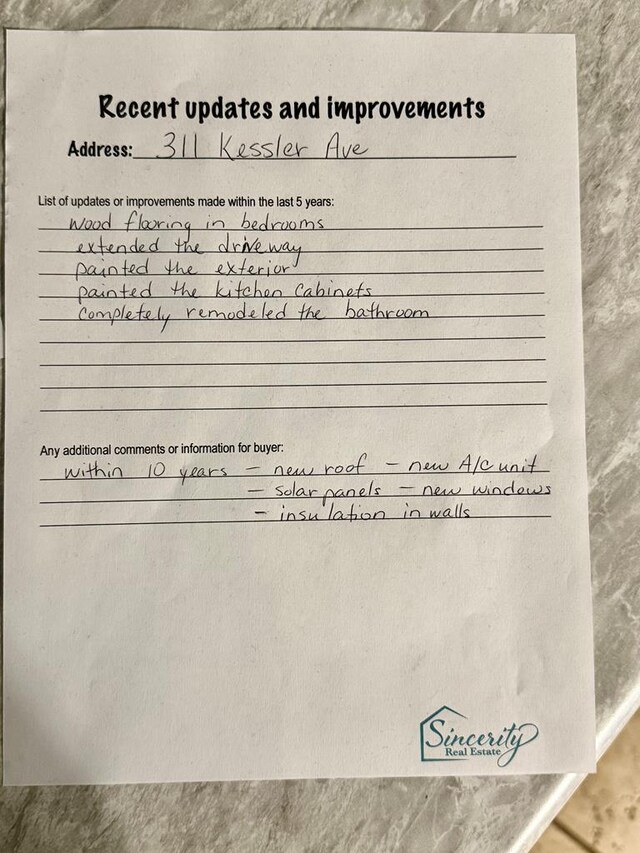 Recent updates and improvements
Address: 311 Kessler Ave
List of updates or improvements made within the last 5 years:
wood flooring in bedrooms
extended the driveway
painted the exterior
painted the kitchen cabinets
completely remodeled the bathroom
Any additional comments or information for buyer:
within 10 years - new roof - new A/C unit
- solar panels - new windows
- insulation in walls
Sincerity
Real Estate